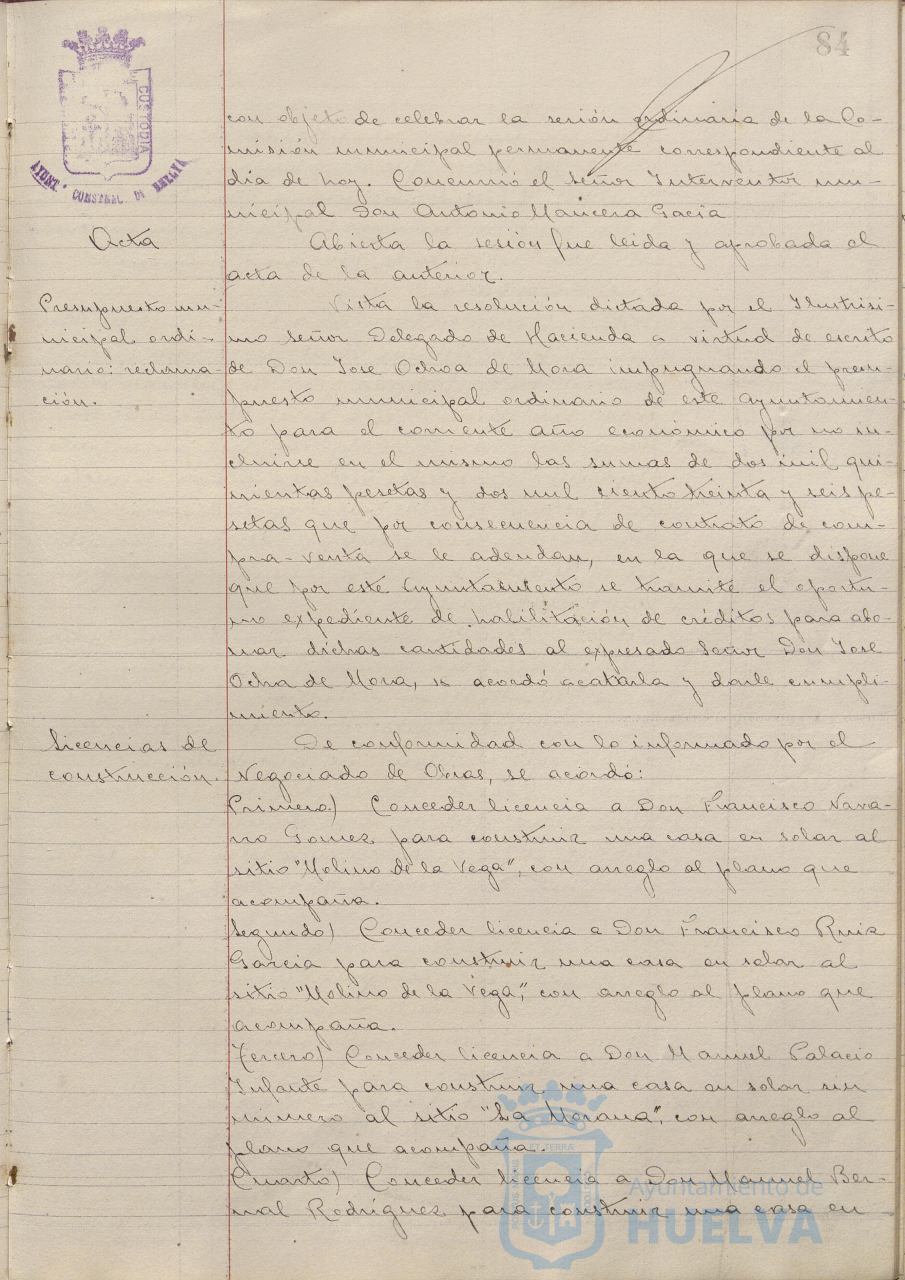 84
CUSTODIA
AYUNT. CONSTNAL. DE HUELVA
con objeto de celebrar la sesión ordinaria de la Co-
misión municipal permanente correspondiente al
dia de hoy. Concurrió el Señor Interventor mu-
nicipal Don Antonio Mancera Gacia
Acta
Abierta la sesión fue leida y aprobada el
acta de la anterior.
Presupuesto mu-
nicipal ordi-
nario: reclama-
ción.
Vista la resolución dictada por el Ilustrisi-
mo Señor Delegado de Hacienda a virtud de escrito
de Don Jose Ochoa de Mora impugnando el presu-
puesto municipal ordinario de este Ayuntamien-
to para el corriente año económico por no in-
cluirse en el mismo las sumas de dos mil qui-
nientas pesetas y dos mil ciento treinta y seis pe-
setas que por consecuencia de contrato de com-
pra-venta se le adeudan, en la que se dispone
que por este Ayuntamiento se tramite el oportu-
no expediente de habilitación de créditos para abo-
nar dichas cantidades al expresado Señor Don Jose
Ochoa de Mora, se acordó acatarla y darle cumpli-
miento.
Licencias de
construcción.
De conformidad con lo informado por el
Negociado de Obras, se acordó:
Primero) Conceder licencia a Don Francisco Nava-
rro Gomez para construir una casa en solar al
sitio "Molino de la Vega", con arreglo al plano que
acompaña.
Segundo) Conceder licencia a Don Francisco Ruiz
Garcia para construir una casa en solar al
sitio "Molino de la Vega", con arreglo al plano que
acompaña.
Tercero) Conceder licencia a Don Manuel Palacio
Infante para construir una casa en solar sin
número al sitio "La Morana", con arreglo al
plano que acompaña.
Cuarto) Conceder licencia a Don Manuel Ber-
nal Rodríguez para construir una casa en
Ayuntamiento de
HUELVA